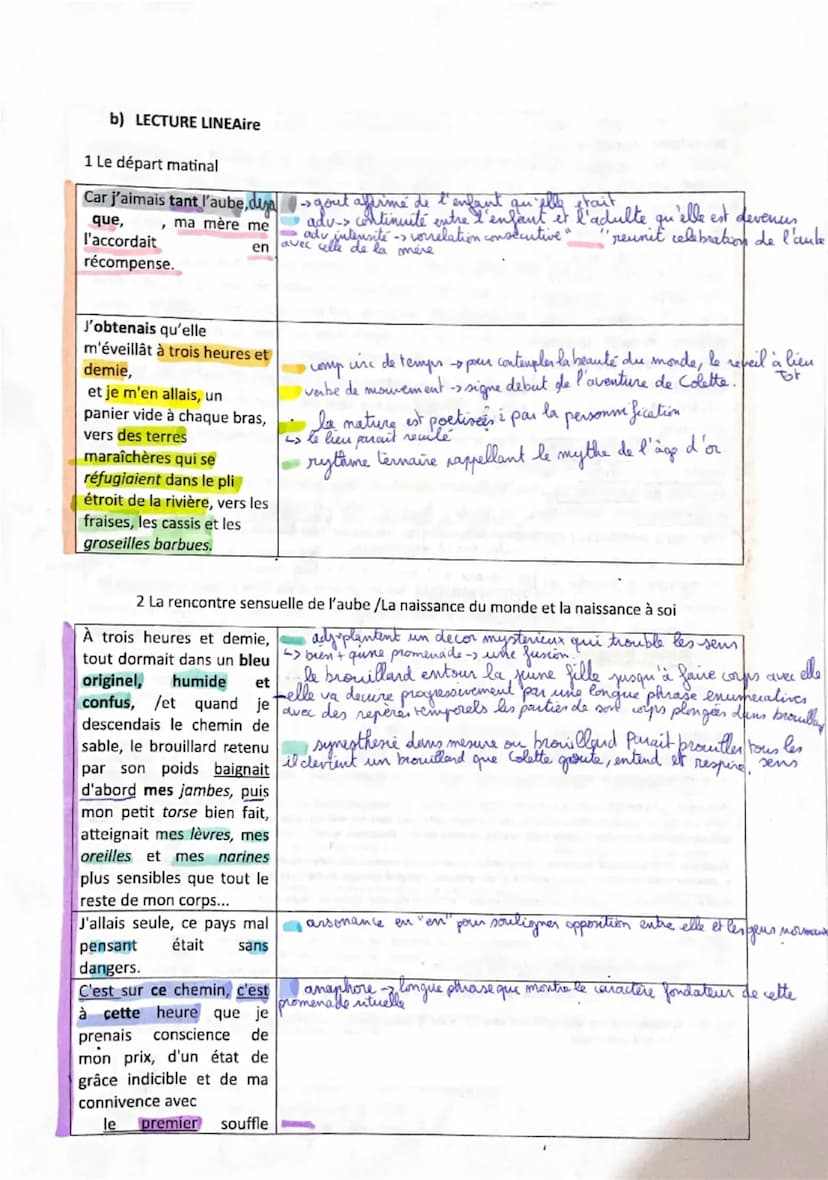 b) LECTURE LINEAire
1 Le départ matinal
Car j'aimais tant l'aube, deja
que, , ma mère me
l'accordait en
récompense.
-> gout affirmé de l'enfant qu'elle etait
adv-> continuité entre l'enfant et l'adulte qu'elle est devenus
adv intensité -> correlation consécutive " " reunit celebration de l'aube
avec celle de la mère
J'obtenais qu'elle
m'éveillât à trois heures et
demie,
et je m'en allais, un
panier vide à chaque bras,
vers des terres
maraîchères qui se
réfugiaient dans le pli
étroit de la rivière, vers les
fraises, les cassis et les
groseilles barbues.
comp circ de temps -> pour contempler la beauté du monde, le reveil à lieu
tot
verbe de mouvement -> signe debut de l'aventure de Colette.
la nature est poetisée, i par la personnification
↳ le lieu parait reculé
rythme ternaire rappellant le mythe de l'âge d'or
2 La rencontre sensuelle de l'aube /La naissance du monde et la naissance à soi
À trois heures et demie,
tout dormait dans un bleu
originel, humide et
confus, /et quand je
descendais le chemin de
sable, le brouillard retenu
par son poids baignait
d'abord mes jambes, puis
mon petit torse bien fait,
atteignait mes lèvres, mes
oreilles et mes narines
plus sensibles que tout le
reste de mon corps...
adj->plantent un decor mysterieux qui trouble les sens
↳ bien + qu'une promenade -> une fusion.
le brouillard entour la jeune fille jusqu'à faire corps avec elle
elle va decrire progressivement par une longue phrase enumeratives
avec des repères temporels les parties de son corps plongées dans brouillard
synesthesie dans mesure ou brouillard Parait brouiller tous les
sens
il devient un brouillard que Colette goute, entend et respire.
J'allais seule, ce pays mal
pensant était sans
dangers.
assonance en "en" pour souligner opposition entre elle et les gens normaux
C'est sur ce chemin, c'est
à cette heure que je
prenais conscience de
mon prix, d'un état de
grâce indicible et de ma
connivence avec
le premier souffle
anaphore -> longue phrase que montre le caractère fondateur de cette
promenade rituelle